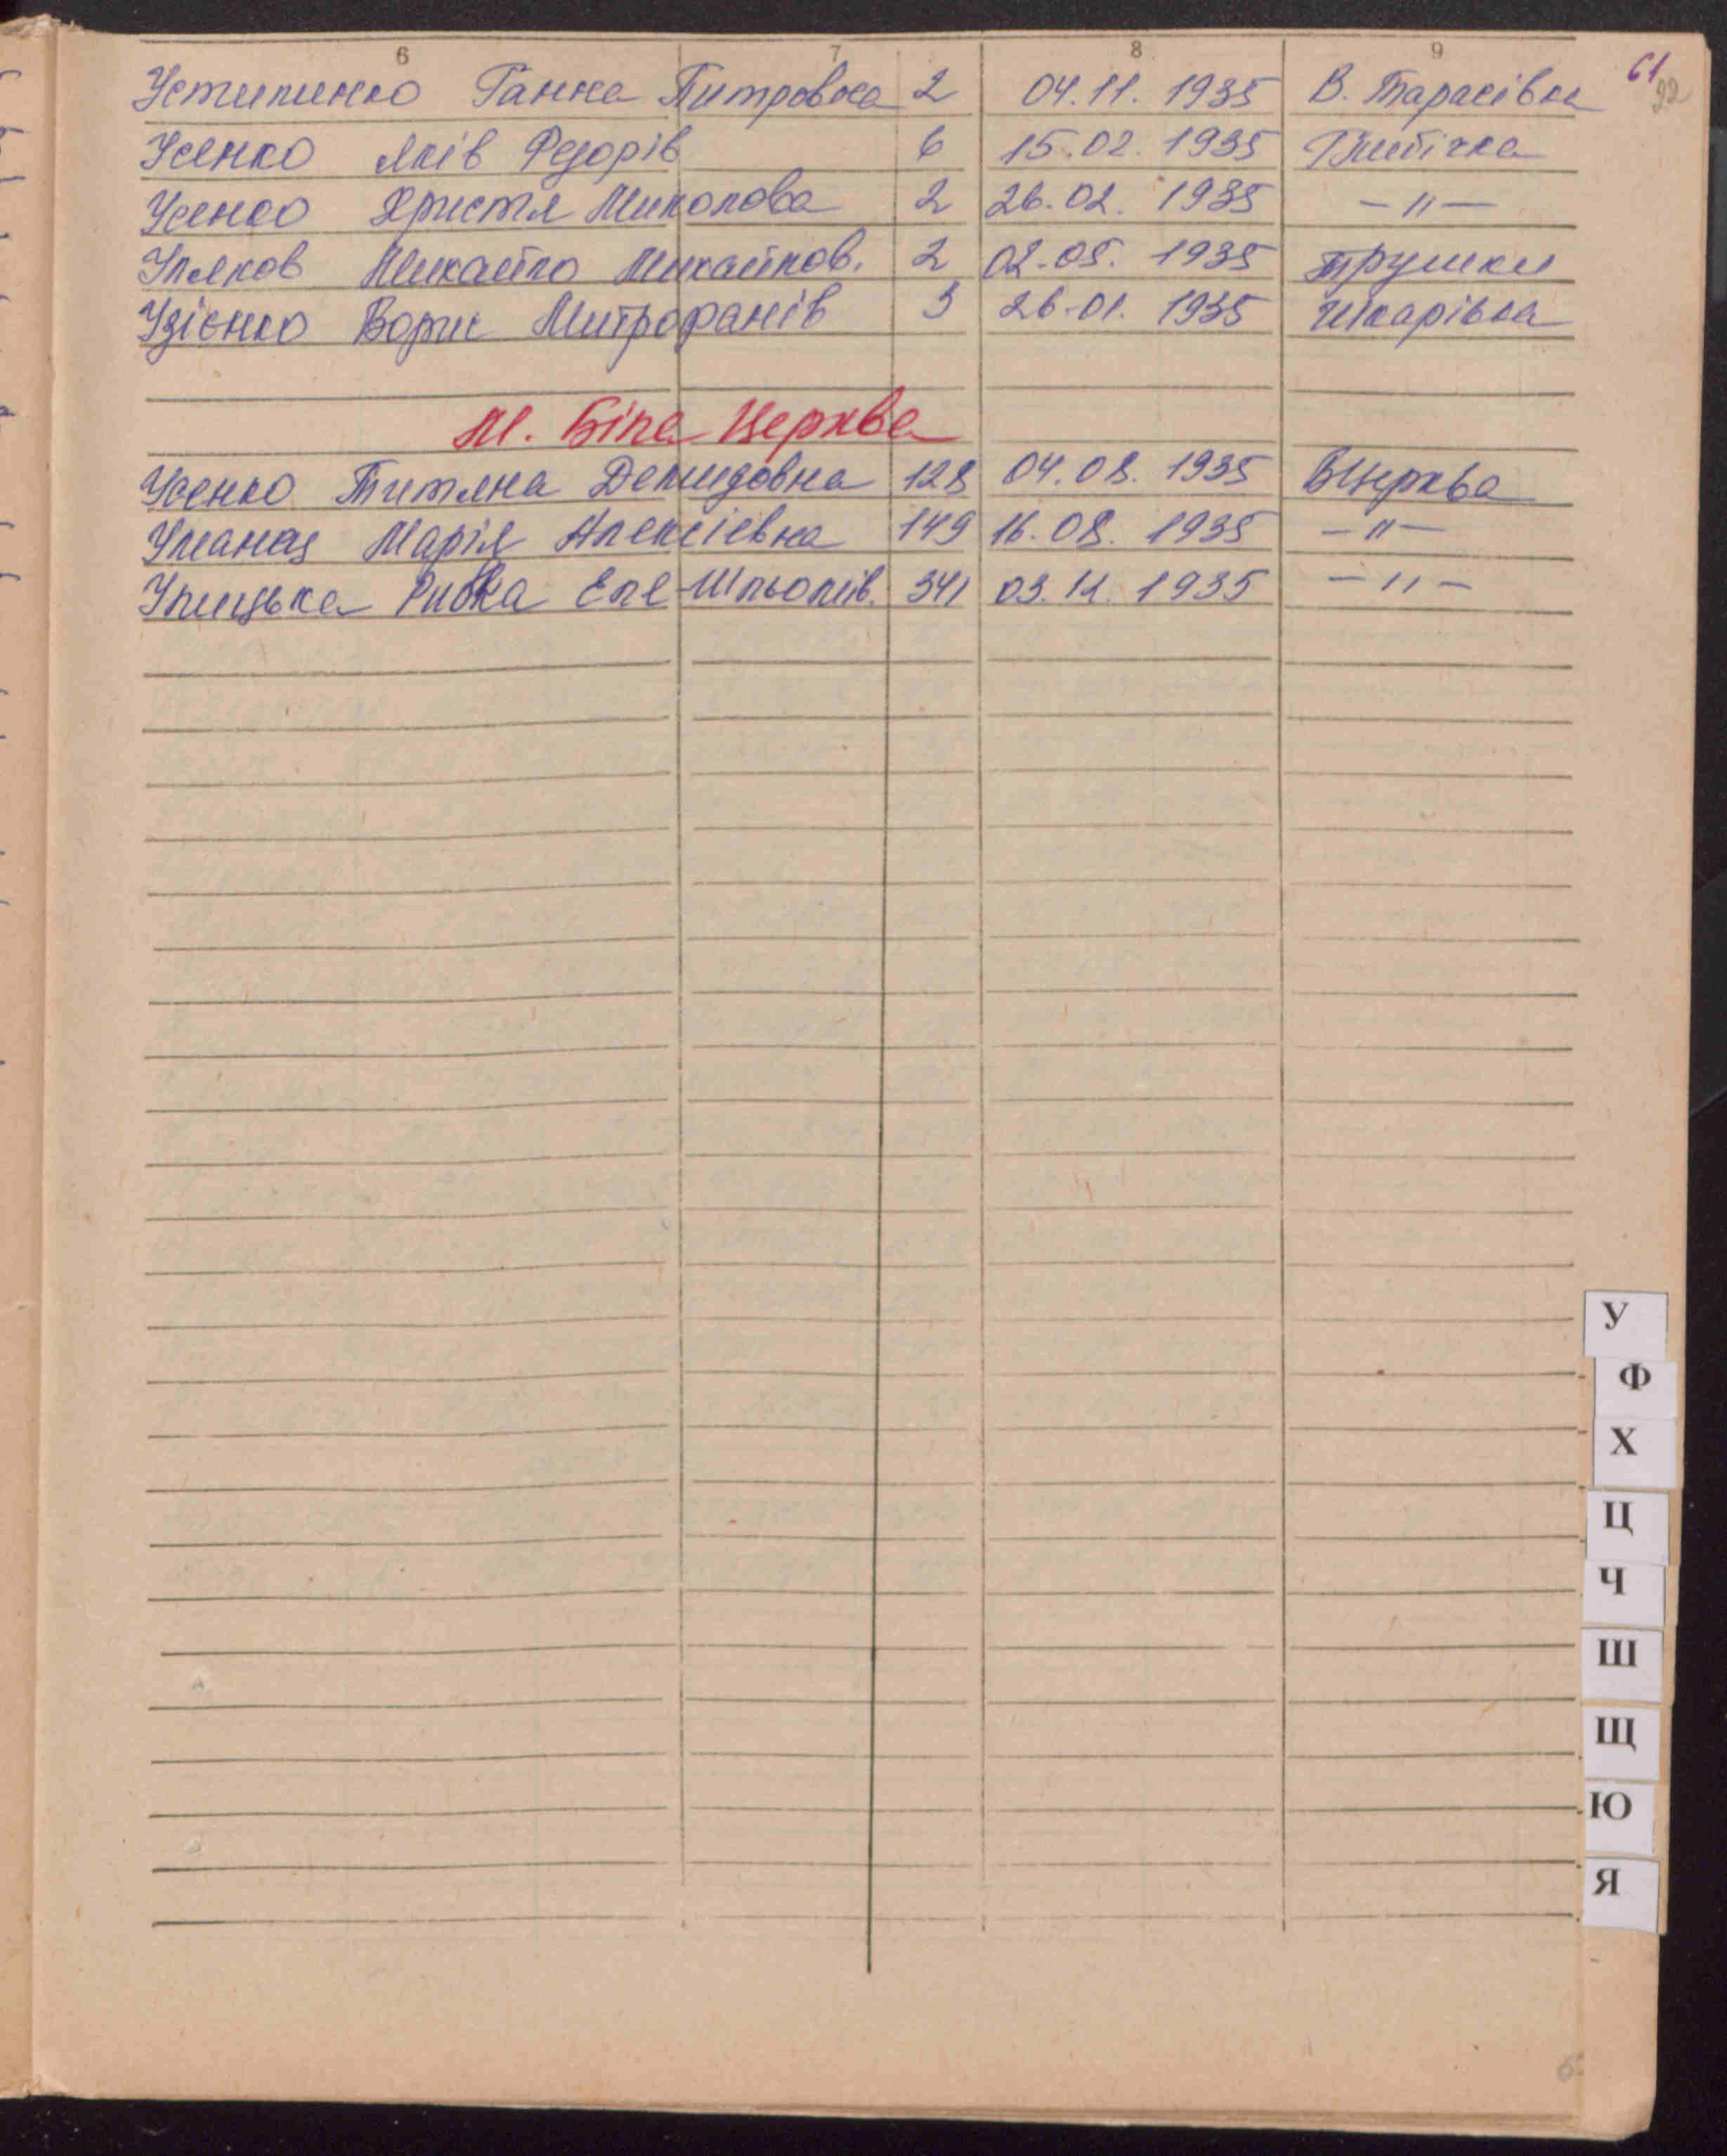 6 7 8 9
61
92
Устименко Ганна Питровна 2 04.11.1935 В. Тарасівка
Усенко Яків Федорів 6 15.02.1935 Глибічка
Усенко Христя Миколова 2 26.02.1935 -"-
Уляков Михайло Михайлов. 2 02.05.1935 Трушки
Удієнко Борис Митрофанів 3 26.01.1935 Шкарівка
М. Біла Церква
Усенко Титяна Демидовна 128 04.08.1935 БЦерква
Уманец Марія Алексіевна 149 16.08.1935 -"-
Улицька Ривка Еле-Шльомів. 341 03.12.1935 -"-
У
Ф
Х
Ц
Ч
Ш
Щ
Ю
Я